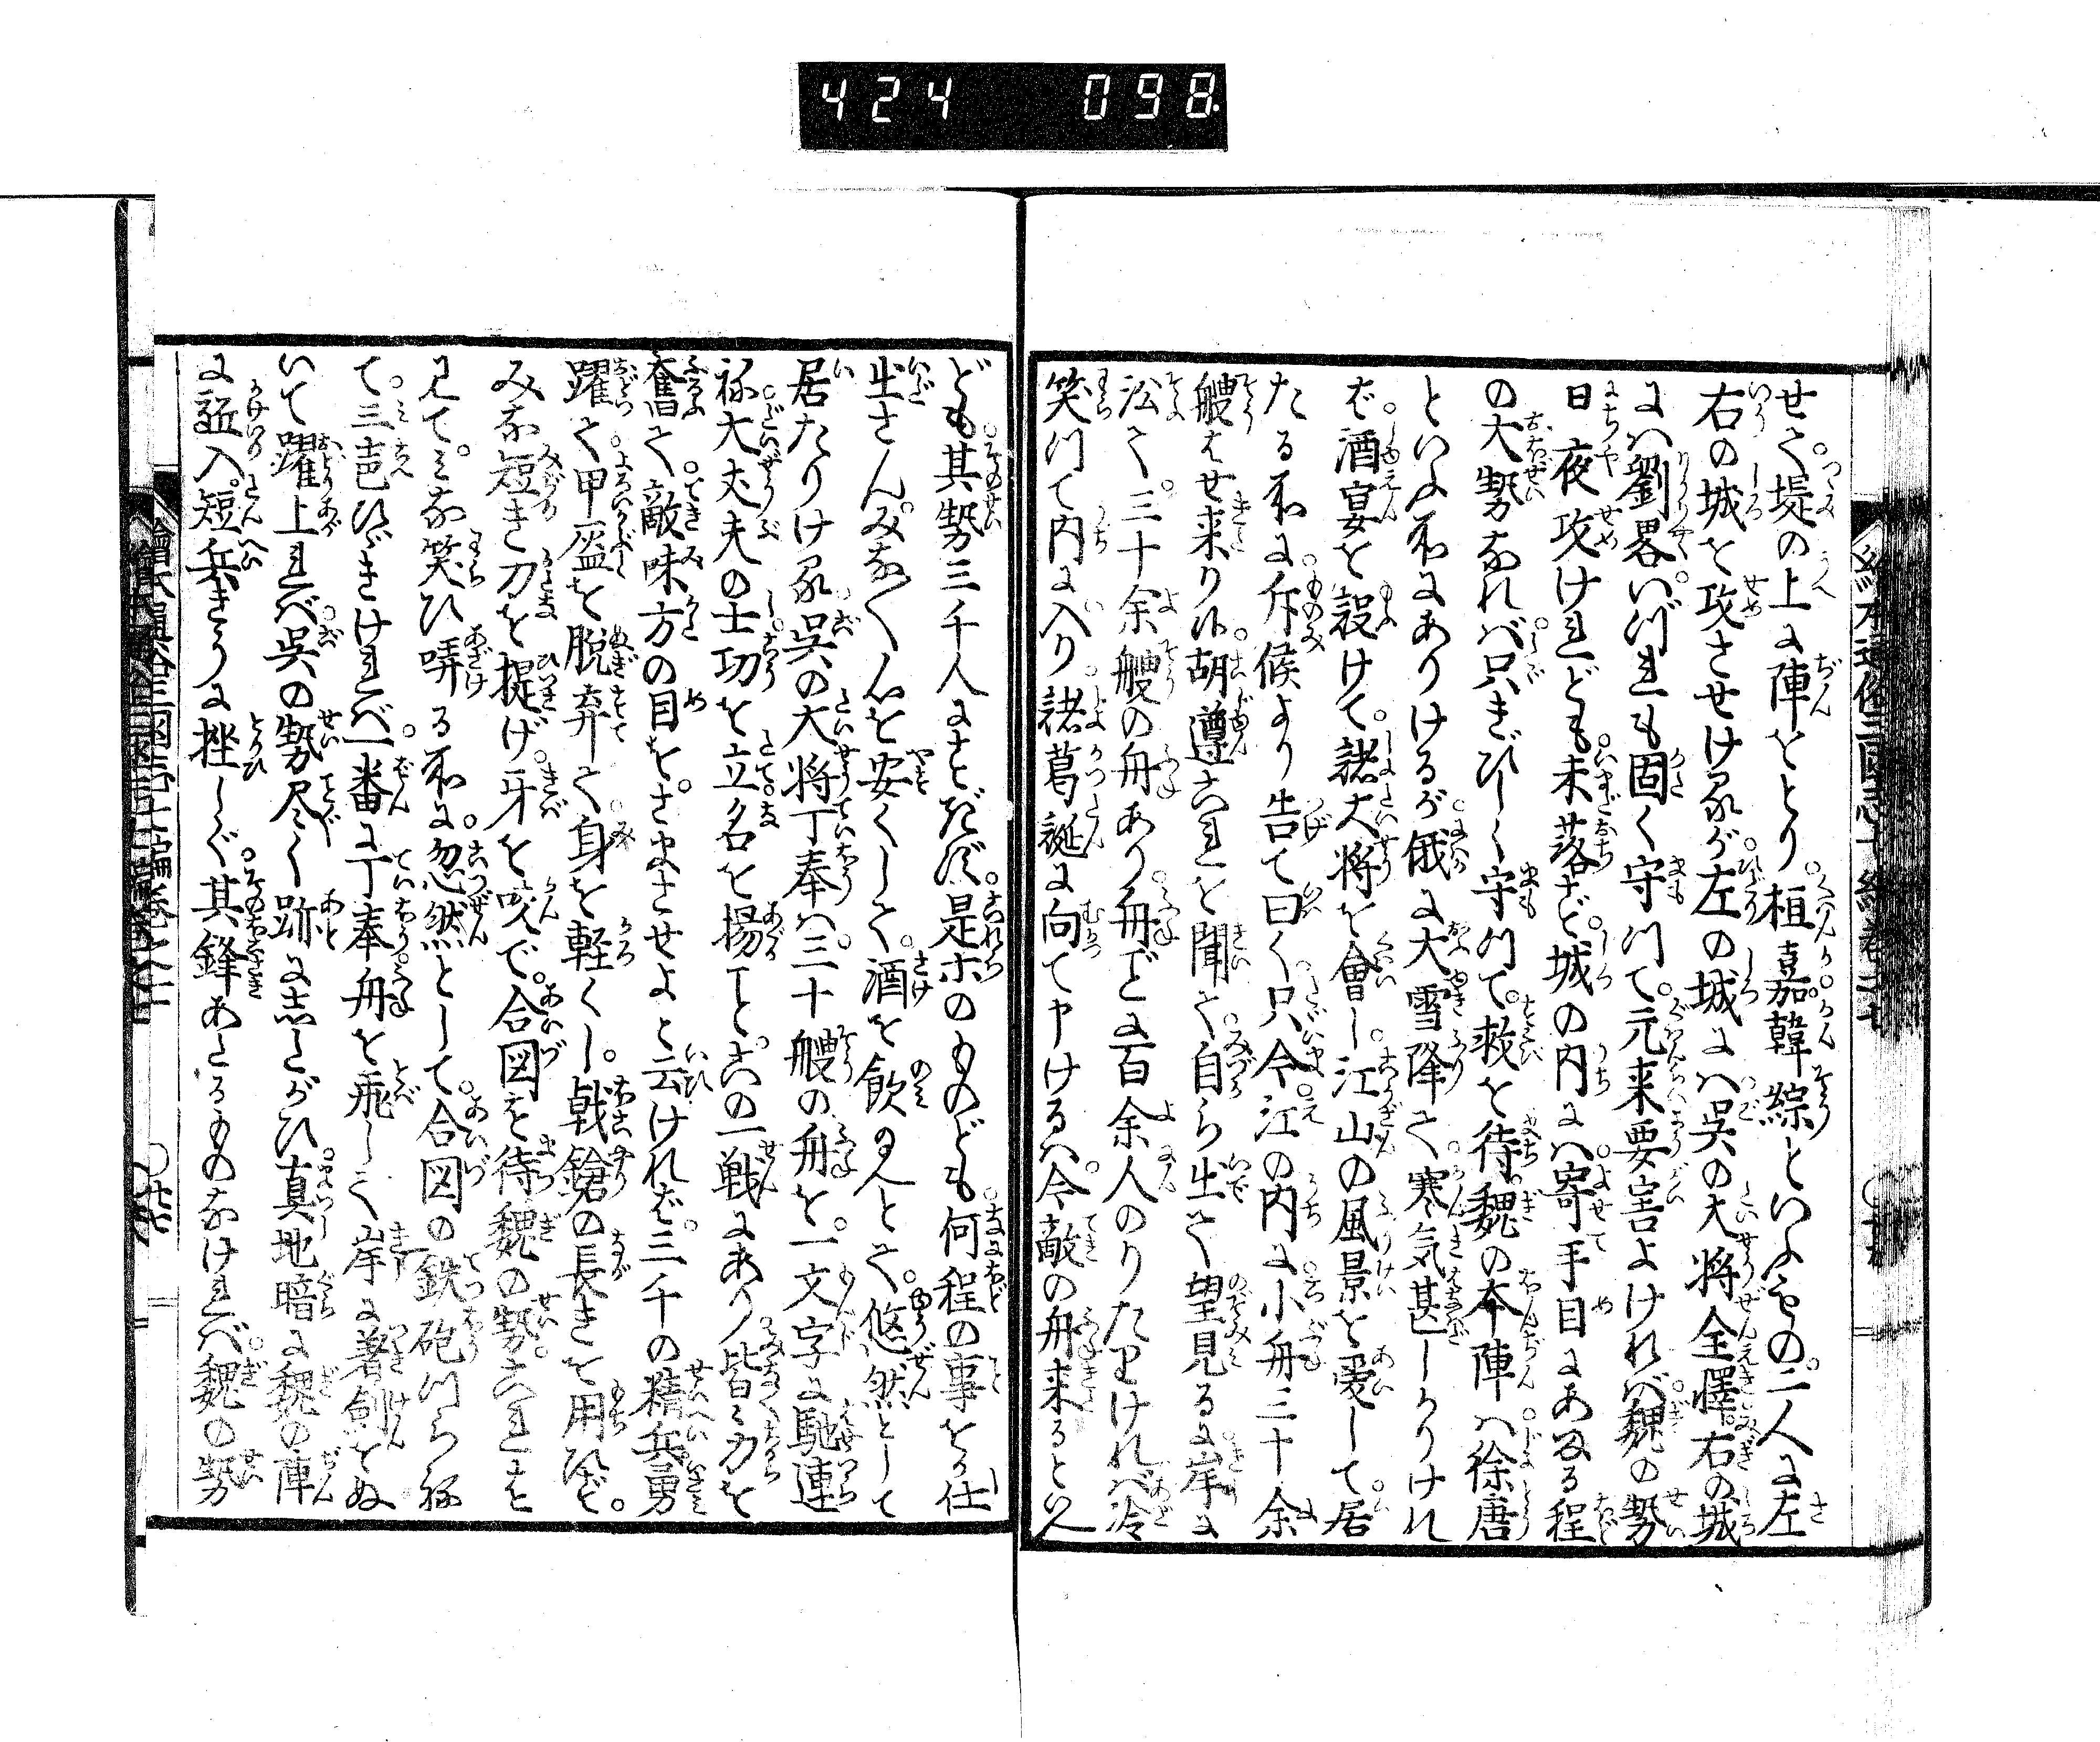 424 098
せて堤の上に陣をとり桓嘉韓綜といふもの二人に左
右の城を攻させけるが左の城には呉の大将全懌右の城
には劉畧いづれも固く守つて元来要害よければ魏の勢
日夜攻けれども未落ざ城の内には寄手目にあまる程
の大勢なれば只きびしく守つて救を待魏の本陣は徐唐
といふ所にありけるが俄に大雪降て寒気甚しかりけれ
ば酒宴を設けて諸大将を會し江山の風景を愛して居
たる所に斥候より告て曰く只今江の内に小舟三十余
艘よせ来り候胡遵これを聞て自ら出て望見るに岸に
訟て三十余艘の舟あり舟ごとに百余人のりたりければ冷
笑つて内に入り諸葛誕に向て申けるは今敵の舟来るといへ
ども其勢三千人にすぎず是ホのものども何程の事をか仕
出さんみな〱心を安くして酒を飲めとて悠然として
居たりける呉の大将丁奉は三十艘の舟を一文字に馳連
ね大丈夫の士功を立名を揚ること此の一戦にあり皆〻力を
奮て敵味方の目をさまさせよと云ければ三千の精兵勇
躍て甲盔を脱弃て身を軽くし戟鎗の長きを用ひず
みな短き刀を提げ牙を咬で合図を待魏の勢これを
見てみな笑ひ哢る所に忽然として合図の鉄砲つら秤
て三声ひゞきければ一番に丁奉舟を飛して岸に著剣をぬ
いて躍上れば呉の勢尽く跡にしたがひ真地暗に魏の陣
に蒐入短兵きうに挫しぐ其鋒あたるものなければ魏の勢